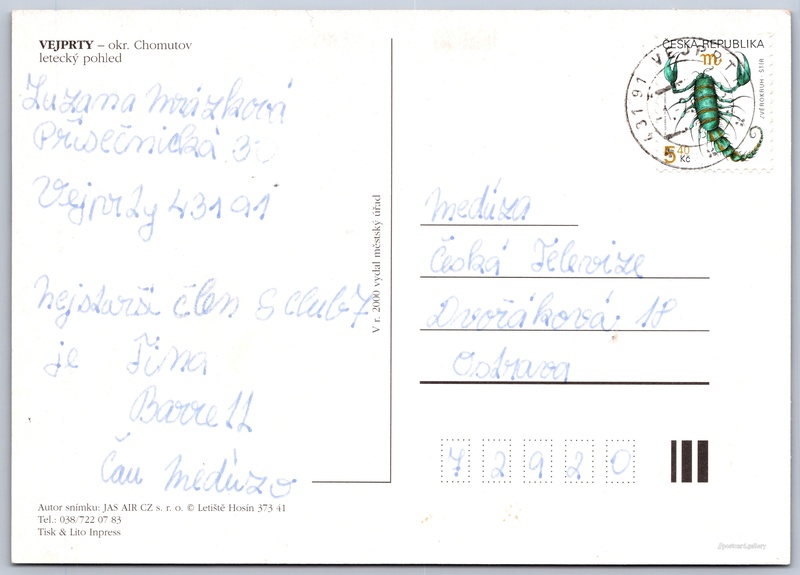 VEJPRTY – okr. Chomutov
letecký pohled
Zuzana Mrázková
Přísečnická 30
Vejprty 431 91
nejstarší člen S club 7
je Tina
Barrell
Čau Medúzo
Autor snímku: JAS AIR CZ s. r. o. © Letiště Hosín 373 41
Tel.: 038/722 07 83
Tisk & Lito Inpress
V r. 2000 vydal městský úřad
ČESKÁ REPUBLIKA
ZVĚROKRUH ŠTÍR
5 40 Kč
431 91 VEJPRTY
Medúza
Česká Televize
Dvořáková 18
Ostrava
7 2 9 2 0